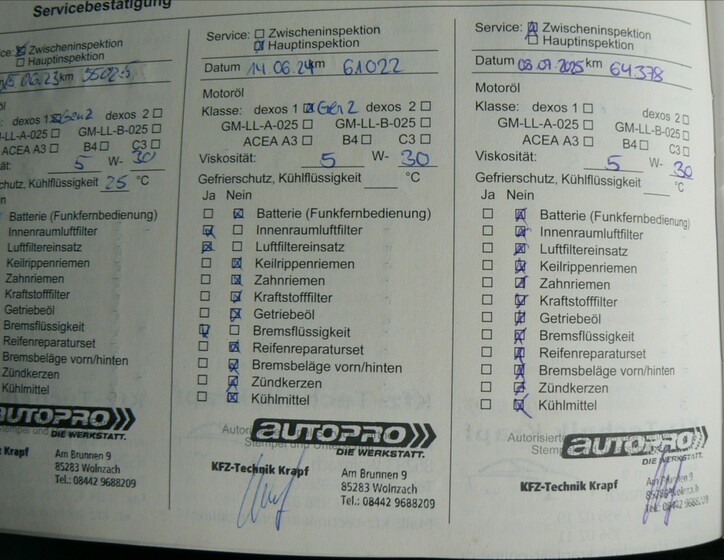 Servicebestätigung
ce: ☒ Zwischeninspektion
☐ Hauptinspektion
06.23 km 55025
öl
: dexos 1 ☒ Gen2 dexos 2 ☐
-LL-A-025 ☐ GM-LL-B-025 ☐
ACEA A3 ☐ B4 ☐ C3 ☐
tät: 5 W- 30
chutz, Kühlflüssigkeit 25 °C
n
Batterie (Funkfernbedienung)
Innenraumluftfilter
Luftfiltereinsatz
Keilrippenriemen
Zahnriemen
Kraftstofffilter
Getriebeöl
Bremsflüssigkeit
Reifenreparaturset
Bremsbeläge vorn/hinten
Zündkerzen
Kühlmittel
AUTOPRO
DIE WERKSTATT.
Krapf
Am Brunnen 9
85283 Wolnzach
Tel.: 08442 9688209
Service: ☐ Zwischeninspektion
☒ Hauptinspektion
Datum 14.06.24 km 61022
Motoröl
Klasse: dexos 1 ☒ Gen2 dexos 2 ☐
GM-LL-A-025 ☐ GM-LL-B-025 ☐
ACEA A3 ☐ B4 ☐ C3 ☐
Viskosität: 5 W- 30
Gefrierschutz, Kühlflüssigkeit °C
Ja Nein
☐ ☒ Batterie (Funkfernbedienung)
☒ ☐ Innenraumluftfilter
☒ ☐ Luftfiltereinsatz
☐ ☒ Keilrippenriemen
☐ ☒ Zahnriemen
☐ ☒ Kraftstofffilter
☐ ☒ Getriebeöl
☒ ☐ Bremsflüssigkeit
☐ ☒ Reifenreparaturset
☐ ☒ Bremsbeläge vorn/hinten
☐ ☒ Zündkerzen
☐ ☒ Kühlmittel
AUTOPRO
DIE WERKSTATT.
KFZ-Technik Krapf
Am Brunnen 9
85283 Wolnzach
Tel.: 08442 9688209
Service: ☒ Zwischeninspektion
☐ Hauptinspektion
Datum 08.07.2025 km 64378
Motoröl
Klasse: dexos 1 ☐ dexos 2 ☐
GM-LL-A-025 ☐ GM-LL-B-025 ☐
ACEA A3 ☐ B4 ☐ C3 ☐
Viskosität: 5 W- 30
Gefrierschutz, Kühlflüssigkeit °C
Ja Nein
☐ ☒ Batterie (Funkfernbedienung)
☐ ☒ Innenraumluftfilter
☐ ☒ Luftfiltereinsatz
☐ ☒ Keilrippenriemen
☐ ☒ Zahnriemen
☐ ☒ Kraftstofffilter
☐ ☒ Getriebeöl
☐ ☒ Bremsflüssigkeit
☐ ☒ Reifenreparaturset
☐ ☒ Bremsbeläge vorn/hinten
☐ ☒ Zündkerzen
☐ ☒ Kühlmittel
Autorisierte
AUTOPRO
DIE WERKSTATT.
KFZ-Technik Krapf
Am Brunnen 9
85283 Wolnzach
Tel.: 08442 9688209